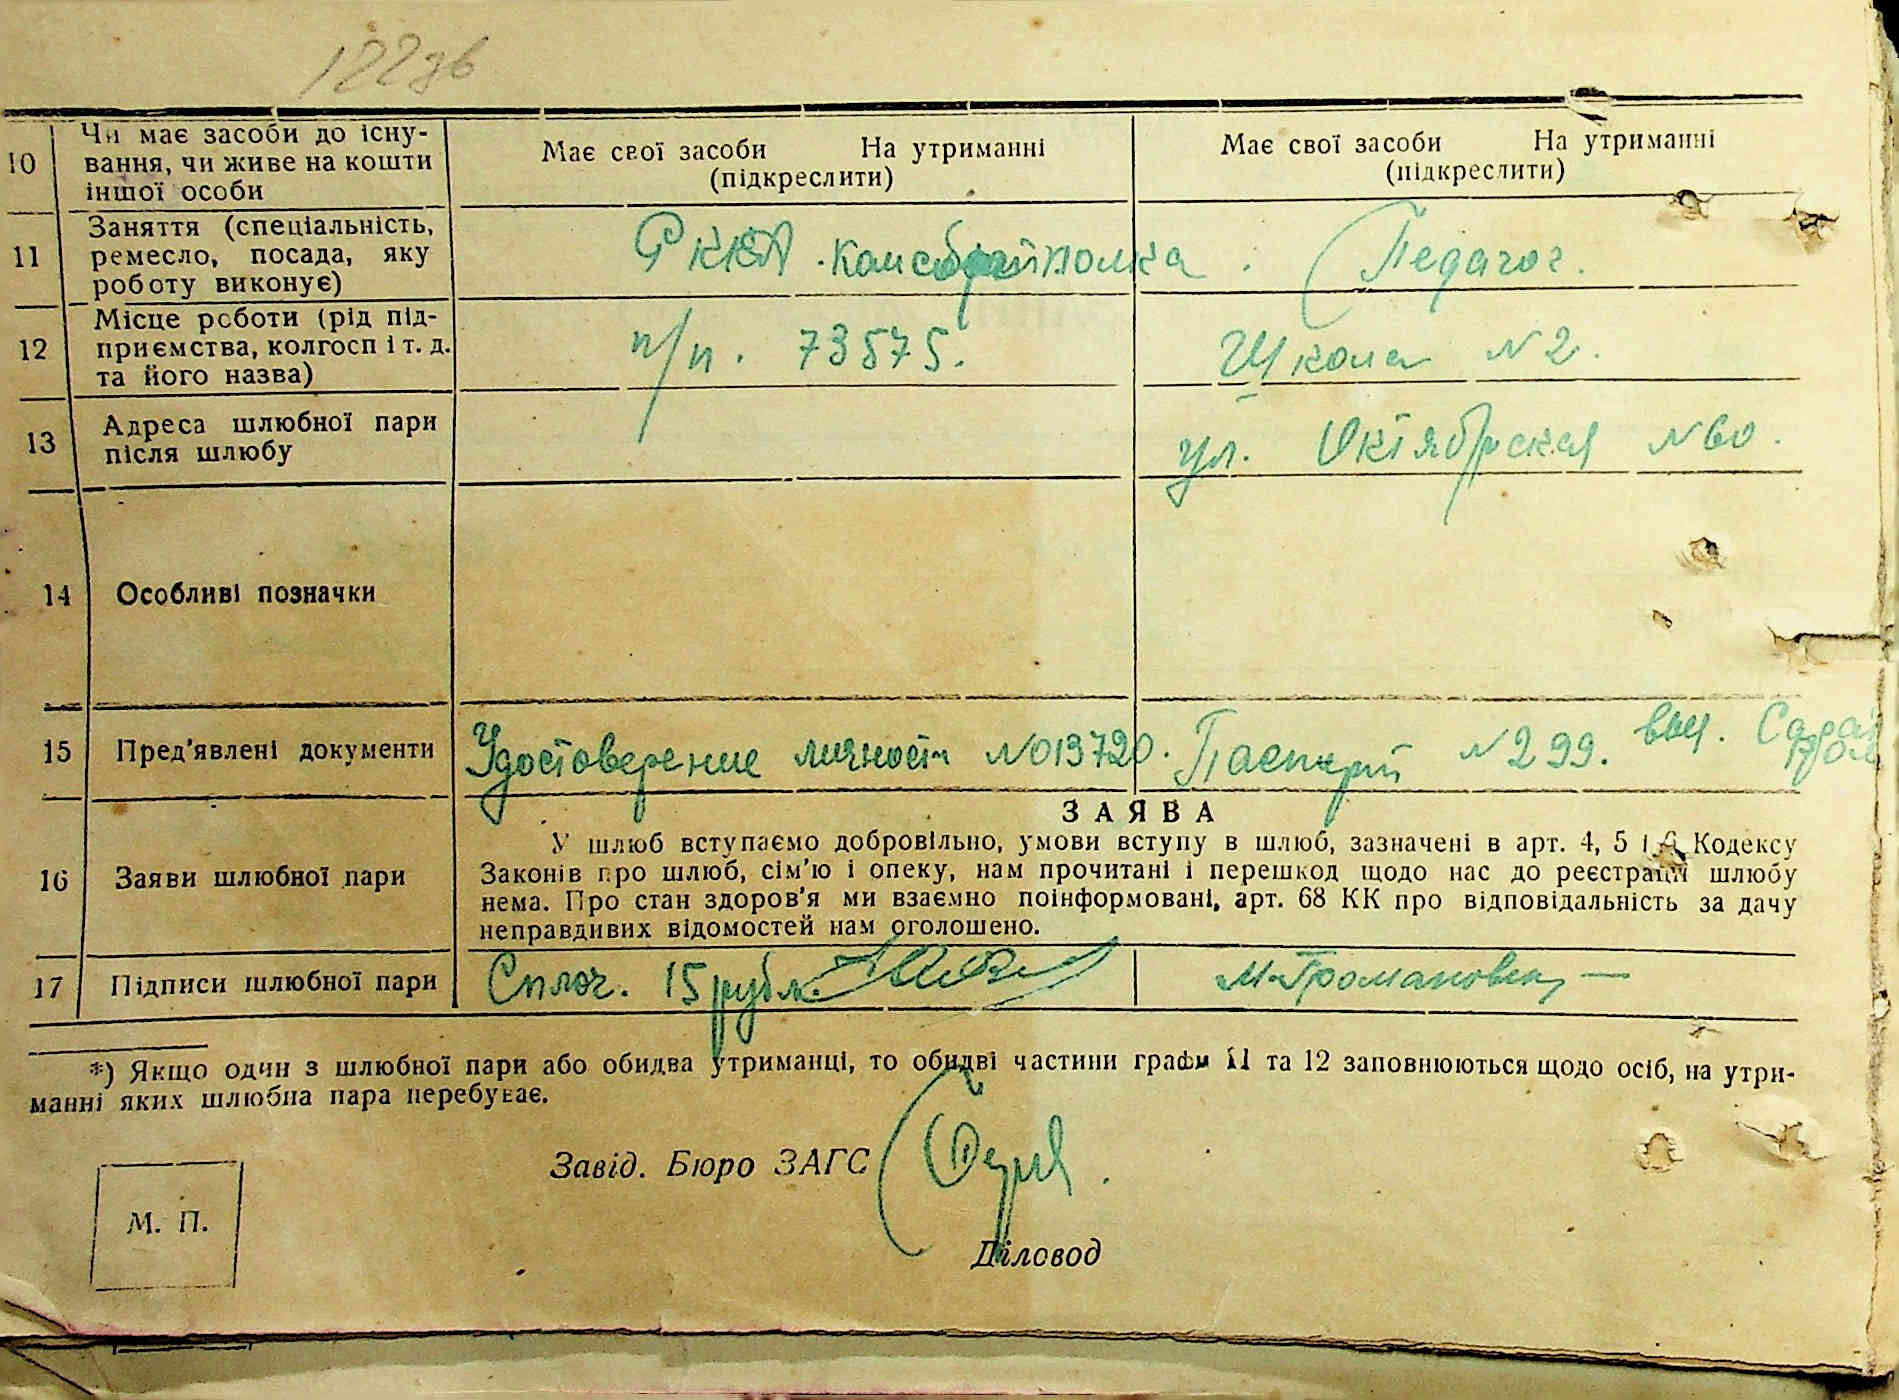 122зв
10 Чи має засоби до існу-
вання, чи живе на кошти
іншої особи
Має свої засоби На утриманні
(підкреслити)
Має свої засоби На утриманні
(підкреслити)
11 Заняття (спеціальність,
ремесло, посада, яку
роботу виконує)
РККА
Педагог.
12 Місце роботи (рід під-
приємства, колгосп і т. д.
та його назва)
п/п. 73575.
Школа N 2.
13 Адреса шлюбної пари
після шлюбу
ул. Октябрская N 60.
14 Особливі позначки
15 Пред'явлені документи
Удостоверение личности N 013720.
Паспорт N 299. выд.
16 Заяви шлюбної пари
ЗАЯВА
У шлюб вступаємо добровільно, умови вступу в шлюб, зазначені в арт. 4, 5 і 6 Кодексу
Законів про шлюб, сім'ю і опеку, нам прочитані і перешкод щодо нас до реєстрації шлюбу
нема. Про стан здоров'я ми взаємно поінформовані, арт. 68 КК про відповідальність за дачу
неправдивих відомостей нам оголошено.
17 Підписи шлюбної пари
Сплоч. 15 рубл.
*) Якщо один з шлюбної пари або обидва утриманці, то обидві частини графи 11 та 12 заповнюються щодо осіб, на утри-
манні яких шлюбна пара перебуває.
Завід. Бюро ЗАГС
М. П.
Діловод